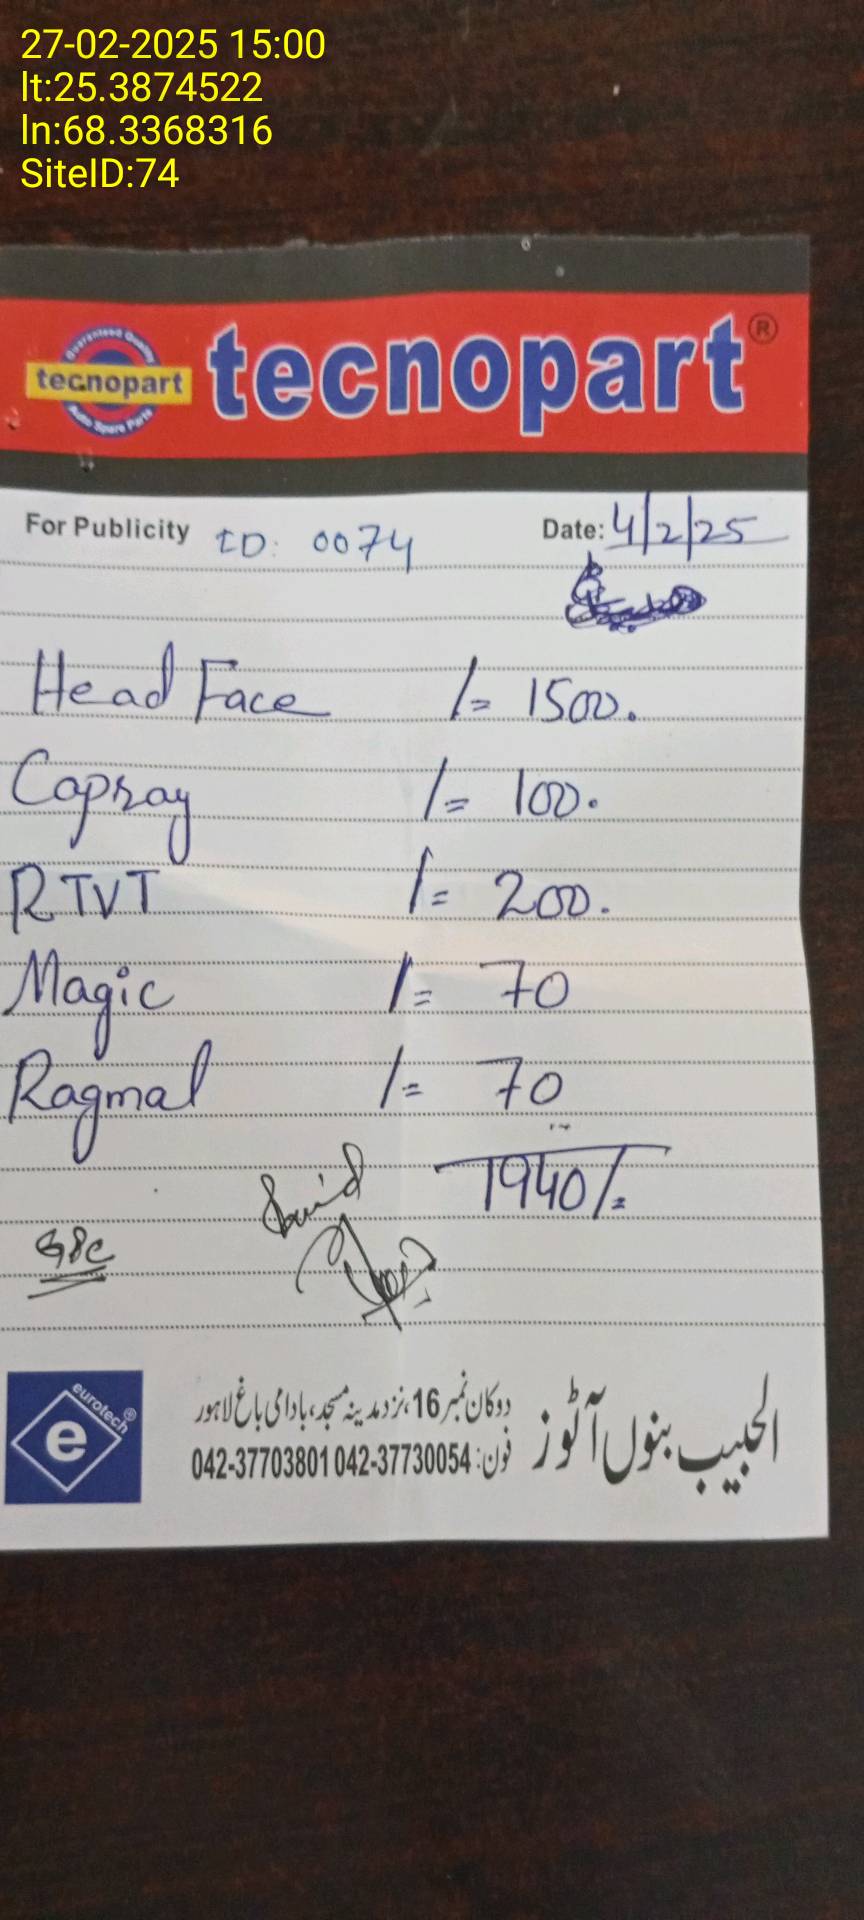 27-02-2025 15:00
lt:25.3874522
ln:68.3368316
SiteID:74
Guaranteed Quality
tecnopart
Auto Spare Parts
tecnopart®
For Publicity ID: 0074 Date: 4/2/25
Head Face /= 1500.
Capray /= 100.
RTVT /= 200.
Magic /= 70
Ragmal /= 70
1940/=
eurotech®
e
الحبیب بنوں آٹوز
دوکان نمبر 16، نزد مدینہ مسجد، بادامی باغ لاہور
فون: 042-37730054 042-37703801